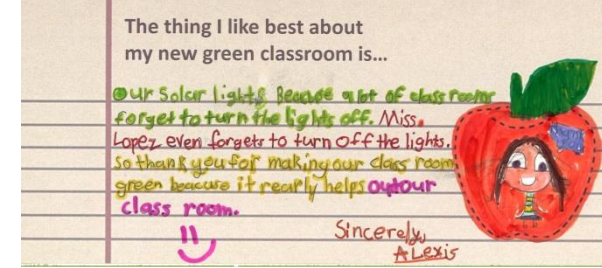 The thing I like best about
my new green classroom is...
Our Solar lights Because a lot of class rooms
forget to turn the lights off. Miss.
Lopez even forgets to turn off the lights.
So thank you for making our class room
green beacuse it rearly helps outour
class room.
Sincerely,
ALexis